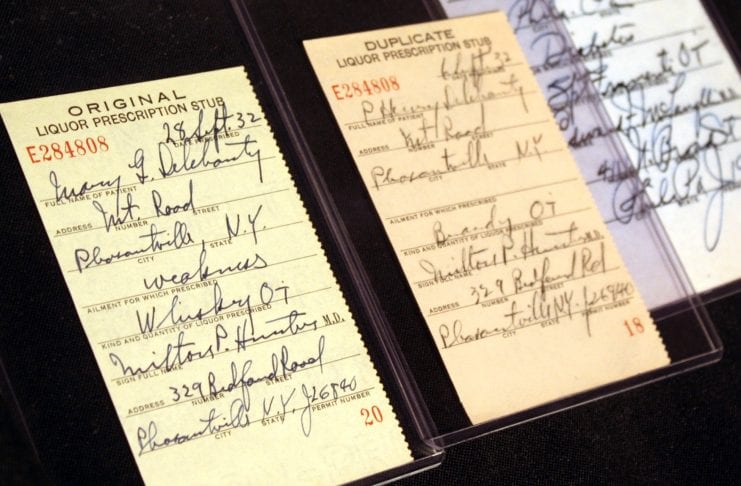 ORIGINAL
LIQUOR PRESCRIPTION STUB
E284808
28 Sept 32
DATE PRESCRIBED
Mary G. Delehanty
FULL NAME OF PATIENT
Mt. Road
ADDRESS NUMBER STREET
Pleasantville, N.Y.
CITY STATE
weakness
AILMENT FOR WHICH PRESCRIBED
Whiskey Oi
KIND AND QUANTITY OF LIQUOR PRESCRIBED
Milton P. Hunter M.D.
SIGN FULL NAME
329 Bedford Road
ADDRESS NUMBER STREET
Pleasantville N.Y. J26940
CITY STATE PERMIT NUMBER
20
DUPLICATE
LIQUOR PRESCRIPTION STUB
E284808
Sept 32
P Henry Delehanty
FULL NAME OF PATIENT
Mt Road
ADDRESS NUMBER STREET
Pleasantville NY
CITY STATE
AILMENT FOR WHICH PRESCRIBED
Brandy Oi
KIND AND QUANTITY OF LIQUOR PRESCRIBED
Milton P. Hunter M.D.
SIGN FULL NAME
329 Bedford Rd
ADDRESS NUMBER STREET
Pleasantville NY. J26940
CITY STATE PERMIT NUMBER
18
Diabetes